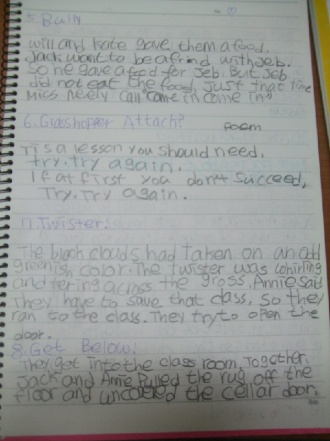 5. Bully
will and kate gave them a food.
Jack want to be a frind with Jeb.
So he gave a food for Jeb. But Jeb
did not eat the food, just that time
Miss Neely call come in come in?
6. Grasshopper Attach? Poem
Ti s a lesson you should need,
try, try again.
If at first you don't Succeed,
Try, Try again.
7. Twister!
The black clouds had taken on an odd
greenish color. The twister was whirling
and tering across the gross. Annie said
They have to save that class, so they
ran to the class. They try to open the
door.
8. Get Below!
They got into the class room. Together,
Jack and Annie pulled the rug off the
floor and uncovered the cellar door.